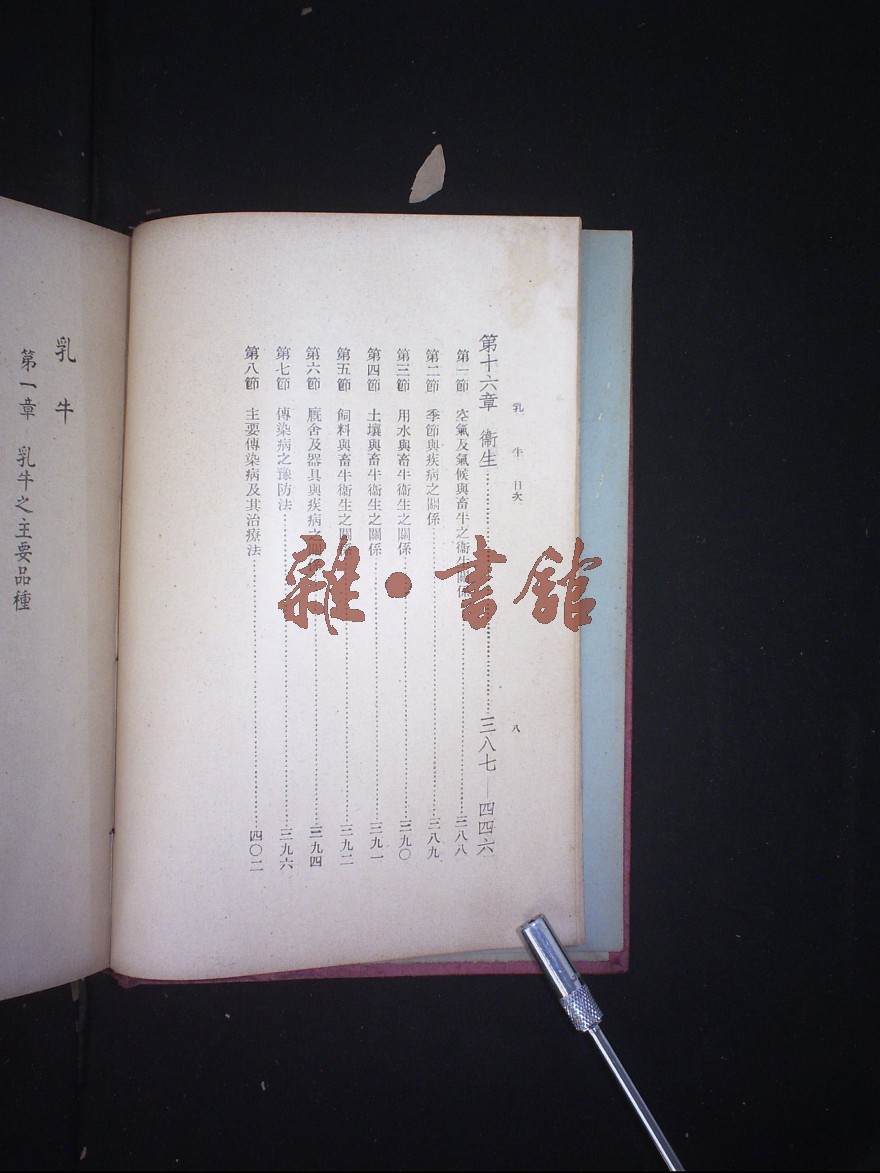 乳牛 目次 八
第十六章 衞生……三八七—四四六
第一節 空氣及氣候與畜牛之衞生關係……三八八
第二節 季節與疾病之關係……三八九
第三節 用水與畜牛衞生之關係……三九〇
第四節 土壤與畜牛衞生之關係……三九一
第五節 飼料與畜牛衞生之關係……三九二
第六節 厩舍及器具與疾病之關係……三九四
第七節 傳染病之豫防法……三九六
第八節 主要傳染病及其治療法……四〇二
乳牛
第一章 乳牛之主要品種
雜·書館